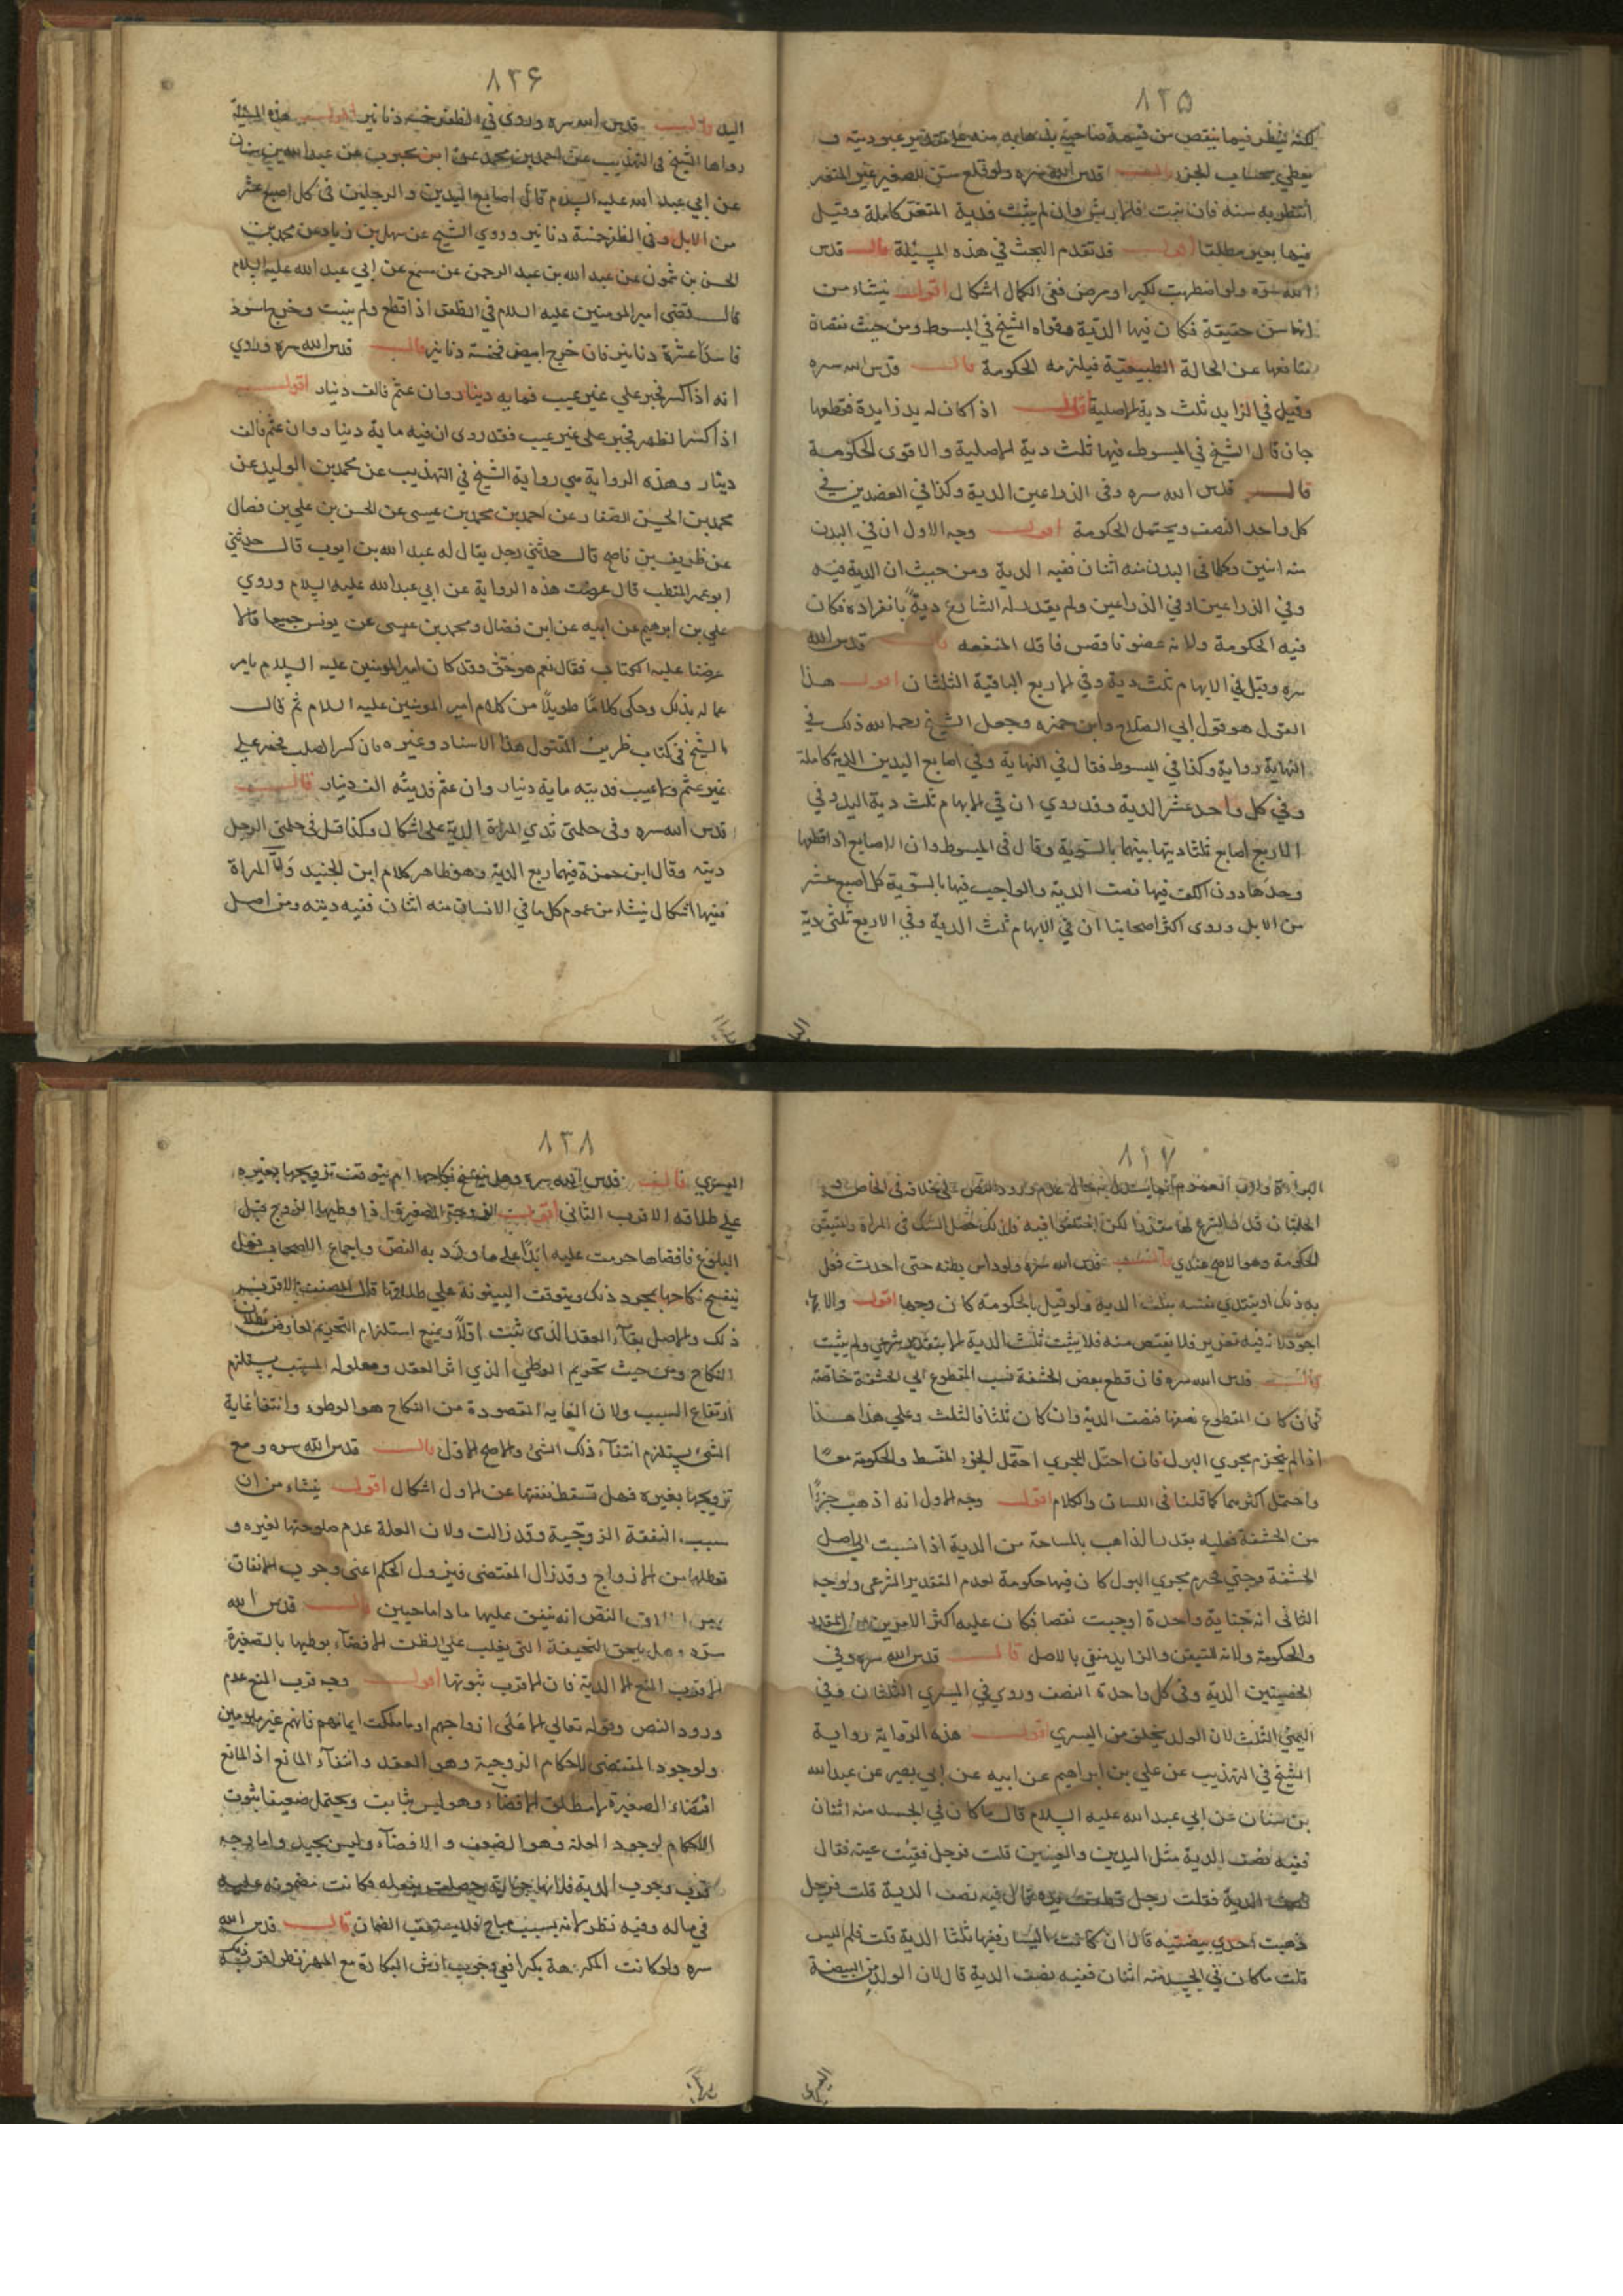 ٨٢٥
لكنه ينظر فيما ينقص من قيمة صاحبه بذهابه منه على تقدير عبوديته و
يعطى بحساب الجزء قالـــ قدس الله سره ولو قلع سن الصغير غير المثغر
انتظر به سنة فان نبت فالارش وان لم ينبت فدية المثغر كاملة وقيل
فيها بعير مطلقا اقولـــ قد تقدم البحث في هذه المسئلة قالـــ قدس
الله سره ولو اضطربت لكبر او مرض ففي الكمال اشكال اقولـــ ينشاء من
انها سن حقيقة فكان فيها الدية وقواه الشيخ في المبسوط ومن حيث نقصان
منافعها عن الحالة الطبيعية فيلزمه الحكومة قالـــ قدس الله سره
وقيل في الزايد ثلث دية الاصلية اذا كان له يد زايدة فقطعها
جان قال الشيخ في المبسوط فيها ثلث دية الاصلية والاقوى الحكومة
قالـــ قدس الله سره وفى الذراعين الدية وكذا في العضدين في
كل واحد النصف ويحتمل الحكومة اقولـــ وجه الاول ان في البدن
منه اثنين وكلما في البدن منه اثنان ففيه الدية ومن حيث ان الدية فيه
وفي الذراعين او في الذراعين ولم يقدر له الشارع دية بانفراده فكان
فيه الحكومة ولانه عضو ناقص فاقل المنفعه قالـــ قدس الله
سره وقيل في الابهام ثلث دية وفي الاربع الباقية الثلثان اقولـــ هذا
القول هو قول ابي الصلاح وابن حمزه وجعل الشيخ رحمه الله ذلك في
النهاية رواية وكذا في المبسوط فقال في النهاية وفي اصابع اليدين الدية كاملة
وفي كل واحد عشر الدية وقد روي ان في الابهام ثلث دية اليد وفي
الاربع اصابع ثلثا ديتها بينهما بالسوية وقال في المبسوط وان الاصابع اذا قطعها
وحدها دون الكف فيها نصف الدية والواجب فيها بالسوية كل اصبع عشر
من الابل وروى اكثر اصحابنا ان في الابهام ثلث الدية وفي الاربع ثلثى دية
اليد
٨٢۶
اليد قالـــ قدس الله سره وروي في الظفر خمسة دنانير اقولـــ هذه المسئلة
رواها الشيخ في التهذيب عن احمد بن محمد عن ابن محبوب عن عبد الله بن سنان
عن ابي عبد الله عليه السلام قال في اصابع اليدين والرجلين في كل اصبع عشر
من الابل وفي الظفر خمسة دنانير وروي الشيخ عن سهل بن زياد عن محمد بن
الحسن بن شمون عن عبد الله بن عبد الرحمن عن مسمع عن ابي عبد الله عليه السلام
قالـــ قضى امير المومنين عليه السلام في الظفر اذا قطع ولم ينبت وخرج اسود
فاسدا عشرة دنانير فان خرج ابيض فخمسة دنانير قالـــ قدس الله سره وروي
انه اذا كسر فجبر على غير عيب فمايه دينار وان عثم فالف دينار اقولـــ
اذا كسر الظهر فجبر على غير عيب فقد روى ان فيه ماية دينار وان عثم فالف
دينار وهذه الرواية هي رواية الشيخ في التهذيب عن محمد بن الوليد عن
محمد بن الحسن الصفار عن احمد بن محمد بن عيسى عن الحسن بن علي بن فضال
عن ظريف بن ناصح قالـــ حدثني رجل يقال له عبد الله بن ايوب قالـــ حدثني
ابو عمر المتطبب قال عرضت هذه الرواية عن ابي عبد الله عليه السلام وروي
علي بن ابرهيم عن ابيه عن ابن فضال ومحمد بن عيسى عن يونس جميعا قالا
عرضنا عليه الكتاب فقال نعم هو حق وقد كان امير المومنين عليه السلام يامر
عماله بذلك وحكى كلامًا طويلًا من كلام امير المومنين عليه السلام ثم قالـــ
الشيخ في كتاب ظريف المنقول هذا الاسناد وغيره فان كسر الصلب فجبر علي
غير عثم ولا عيب فديته ماية دينار وان عثم فديته الف دينار قالـــ
قدس الله سره وفى حلمتى ثدي المراة الدية على اشكال وكذا قيل في حلمتي الرجل
ديته وقال ابن حمزة فيهما ربع الدية وهو ظاهر كلام ابن الجنيد واما المراة
ففيها اشكال ينشاء من عموم كل ما في الانسان منه اثنان ففيه ديته ومن اصل
٨٢٧
البراءة ولان
الحلمتان قد
الحكومة وهو الاصح عندي قالـــ قدس الله سره ولو داس بطنه حتى احدث فعل
به ذلك او يفتدى نفسه بثلث الدية ولو قيل بالحكومة كان وجها اقولـــ والا
اجود لانه فيه تغرير فلا يقتص منه فلا يثبت ثلث الدية الا بتقدير شرعي ولم يثبت
قالـــ قدس الله سره فان قطع بعض الحشفة نسب المقطوع الي الحشفة خاصة
فان كان المقطوع نصفها فنصف الدية وان كان ثلثا فالثلث وعلي هذا هذا
اذا لم ينخرم مجري البول فان اختل المجري احتمل الجزء المقسط والحكومة معًا
واحتمل اكثرهما كما قلنا في اللسان والكلام اقولـــ وجه الاول انه اذهب جزءًا
من الحشفة فعليه بقدر الذاهب بالمساحة من الدية اذا نسبت الي اصل
الحشفة وجتي مجري البول كان فيها حكومة لعدم التقدير الشرعي ولوجه
الثاني انه جناية واحدة اوجبت نقصا فكان عليه اكثر الامرين من المقدر
والحكومة ولانه المتيقن والزايد منفي بالاصل قالـــ قدس الله سره وفي
الخصيتين الدية وفى كل واحدة النصف وروي في اليسري الثلثان وفي
اليمني الثلث لان الولد يخلق من اليسري اقولـــ هذه الرواية رواية
الشيخ في التهذيب عن علي بن ابراهيم عن ابيه عن ابي بصير عن عبد الله
بن سنان عن ابي عبد الله عليه السلام قال ما كان في الجسد منه اثنان
ففيه نصف الدية مثل اليدين والعينين قلت فرجل فقئت عينه فقال
نصف الدية فقلت رجل قطعت يده قال فيه نصف الدية قلت فرجل
ذهبت احدي بيضتيه قال ان كانت اليسار ففيها ثلثا الدية قلت فلم اليس
قلت ما كان في الجسد منه اثنان ففيه نصف الدية قال لان الولد من البيضة
اليسري
٨٢٨
اليسري قالـــ قدس الله سره وهل ينفسخ نكاحها ام يتوقف تزويجها بغيره
على طلاقه الاقرب الثاني اقولـــ الزوجة الصغيرة اذا وطيها الزوج قبل
البلوغ فافضاها حرمت عليه ابدًا على ما ورد به النص واجماع الاصحاب فهل
ينفسخ نكاحها بمجرد ذلك ويتوقف البينونة علي طلاقها قال المصنف الاقرب
ذلك والاصل بقاء العقد الذى ثبت اولًا ويمنع استلزام التحريم
النكاح ومن حيث تحريم الوطي الذي اثر العقد ومعلوله المسبب يستلزم
ارتفاع السبب ولان الغاية المقصودة من النكاح هو الوطوء وانتفاء غاية
الشيء يستلزم انتفاء ذلك الشيء والاصح الاول قالـــ قدس الله سره ومع
تزويجها بغيره فهل تسقط نفقتها عن الاول اشكال اقولـــ ينشاء من ان
سبب النفقة الزوجية وقد زالت ولان العلة عدم صلوحتها لغيره و
تعطلها من الازواج وقد زال المقتضى فيزول الحكم اعنى وجوب الانفاق
ومن اطلاق النص انه ينفق عليها ما داما حيين قالـــ قدس الله
سره وهل يلحق النحيفة التي يغلب علي الظن الافضاء بوطيها بالصغيرة
الاقرب المنع الا الدية فان الاقرب ثبوتها اقولـــ وجه قرب المنع عدم
ورود النص وقوله تعالى الا على ازواجهم او ما ملكت ايمانهم فانهم غير ملومين
ولوجود المقتضى لاحكام الزوجية وهو العقد وانتفاء المانع اذ المانع
افضاء الصغيرة لا مطلق الافضاء وهو ليس بثابت ويحتمل ضعيفا ثبوت
الاحكام لوجود العلة وهو الضعف والافضاء وليس بجيد واما وجه
قرب وجوب الدية فلانها جناية حصلت بفعله فكانت مضمونة عليه
في ماله وفيه نظر لانه بسبب مباح فلا يستعقب الضمان قالـــ قدس الله
سره ولو كانت المكرهة بكرا ففي وجوب ارش البكارة مع المهر نظر اقربه